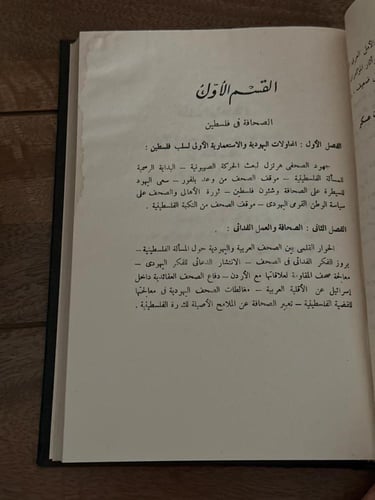 القسم الأول
الصحافة فى فلسطين
الفصل الأول : المحاولات اليهودية والاستعمارية الأولى لسلب فلسطين :
جهود الصحفى هرتزل لبعث الحركة الصهيونية – البداية الرسمية
للمسألة الفلسطينية – موقف الصحف من وعد بلفور – سعى اليهود
للسيطرة على الصحافة وشئون فلسطين – ثورة الأهالى والصحف على
سياسة الوطن القومى اليهودى – موقف الصحف من النكبة الفلسطينية .
الفصل الثانى : الصحافة والعمل الفدائى :
الحوار القلمى بين الصحف العربية واليهودية حول المسألة الفلسطينية –
بروز الفكر الفدائى فى الصحف – الانتشار الدعائى للفكر اليهودى –
معالجة صحف المقاومة لعلاقاتها مع الأردن – دفاع الصحف العقائدية داخل
إسرائيل عن الأقلية العربية – مغالطات الصحف اليهودية فى معالجتها
للقضية الفلسطينية – تعبير الصحافة عن الملامح الأصيلة للثورة الفلسطينية .